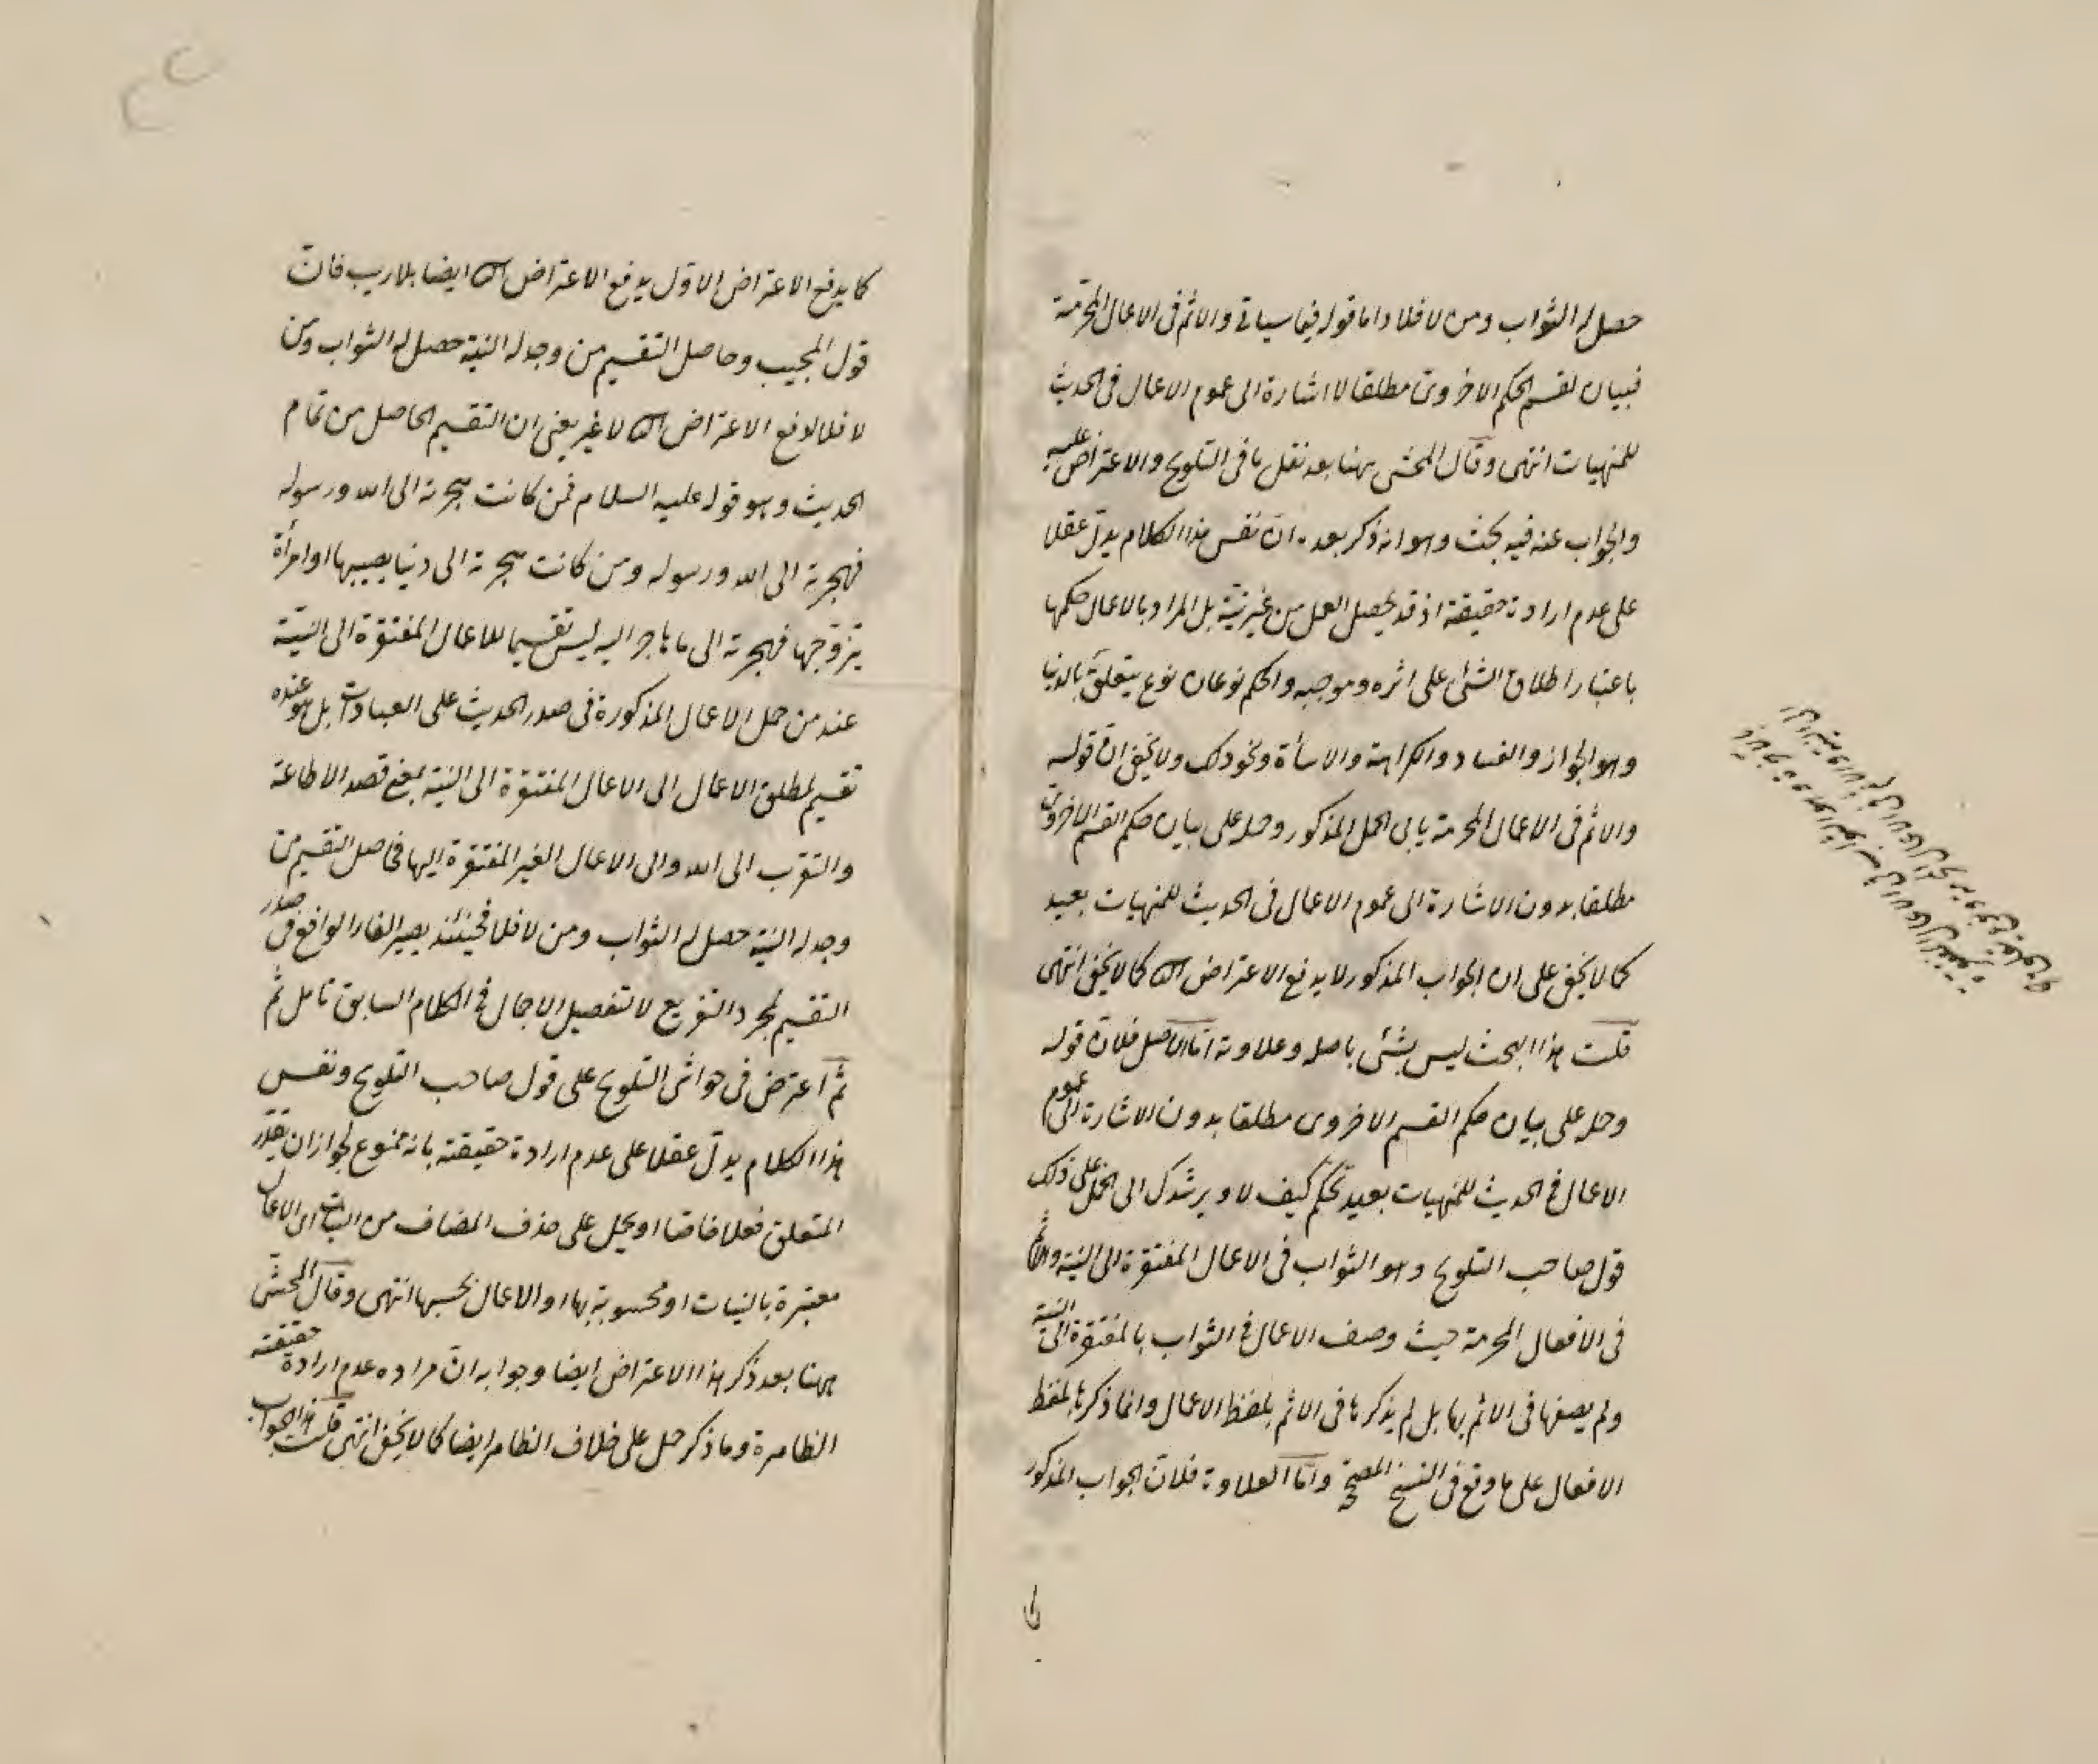 حصل له الثواب ومن لا فلا واما قوله فيما سياتى والاثم فى الاعمال المحرمة
فبيان لقسم الحكم الاخروى مطلقا لا اشارة الى عموم الاعمال فى الحديث
للمنهيات انتهى وقال المحشى ههنا بعد نقل ما فى التلويح والاعتراض عليه
والجواب عنه فيه بحث وهو انه ذكر بعده ان نفس هذا الكلام يدل عقلا
على عدم ارادة حقيقة اذ قد يحصل العمل من غير نية بل المراد بالاعمال حكمها
باعتبار اطلاق الشئ على اثره وموجبه والحكم نوعان نوع يتعلق بالدنيا
وهو الجواز والفساد والكراهة والاساءة ونحو ذلك ولا يخفى ان قوله
والاثم فى الاعمال المحرمة يابى الحمل المذكور وحمله على بيان حكم القسم الاخروى
مطلقا بدون الاشارة الى عموم الاعمال فى الحديث للمنهيات بعيد
كما لا يخفى على ان الجواب المذكور لا يدفع الاعتراض الث كما لا يخفى انتهى
قلت هذا البحث ليس بشئ باصله وعلاوته اما الاصل فلان قوله
وحمله على بيان حكم القسم الاخروى مطلقا بدون الاشارة الى عموم
الاعمال فى الحديث للمنهيات بعيد تحكم كيف لا ويرشدك الى الحمل على ذلك
قول صاحب التلويح وهو الثواب فى الاعمال المفتقرة الى النية والاثم
فى الافعال المحرمة حيث وصف الاعمال فى الثواب بالمفتقرة الى النية
ولم يصفها فى الاثم بها بل لم يذكرها فى الاثم بلفظ الاعمال وانما ذكرها بلفظ
الافعال على ما وقع فى النسخ المصححة واما العلاوة فلان الجواب المذكور
كما يدفع الاعتراض الاول يدفع الاعتراض الث ايضا بلا ريب فان
قول المجيب وحاصل التقسيم من وجد له النية حصل له الثواب ومن
لا فلا لدفع الاعتراض الث لا غير يعنى ان التقسيم الحاصل من تمام
الحديث وهو قوله عليه السلام فمن كانت هجرته الى الله ورسوله
فهجرته الى الله ورسوله ومن كانت هجرته الى دنيا يصيبها او امرأة
يتزوجها فهجرته الى ما هاجر اليه ليس تقسيما للاعمال المفتقرة الى النية
عند من حمل الاعمال المذكورة فى صدر الحديث على العبادات بل هو عنده
تقسيم لمطلق الاعمال الى الاعمال المفتقرة الى النية بمعنى قصد الاطاعة
والتقرب الى الله والى الاعمال الغير المفتقرة اليها فحاصل التقسيم من
وجد له النية حصل له الثواب ومن لا فلا فحينئذ يصير الفاء الواقع فى صدر
التقسيم لمجرد التفريع لا لتفصيل الاجمال فى الكلام السابق تامل ثم
ثم اعترض فى حواشى التلويح على قول صاحب التلويح ونفس
هذا الكلام يدل عقلا على عدم ارادة حقيقته بانه ممنوع لجواز ان يقدر
المتعلق فعلا خاصا او يحمل على حذف المضاف من اى الاعمال
معتبرة بالنيات او محسوبة بها او الاعمال بحسبها انتهى وقال المحشى
ههنا بعد ذكر هذا الاعتراض ايضا وجوابه ان مراده عدم ارادة حقيقته
الظاهرة وما ذكر حمل على خلاف الظاهر ايضا كما لا يخفى انتهى قلت هذا الجواب